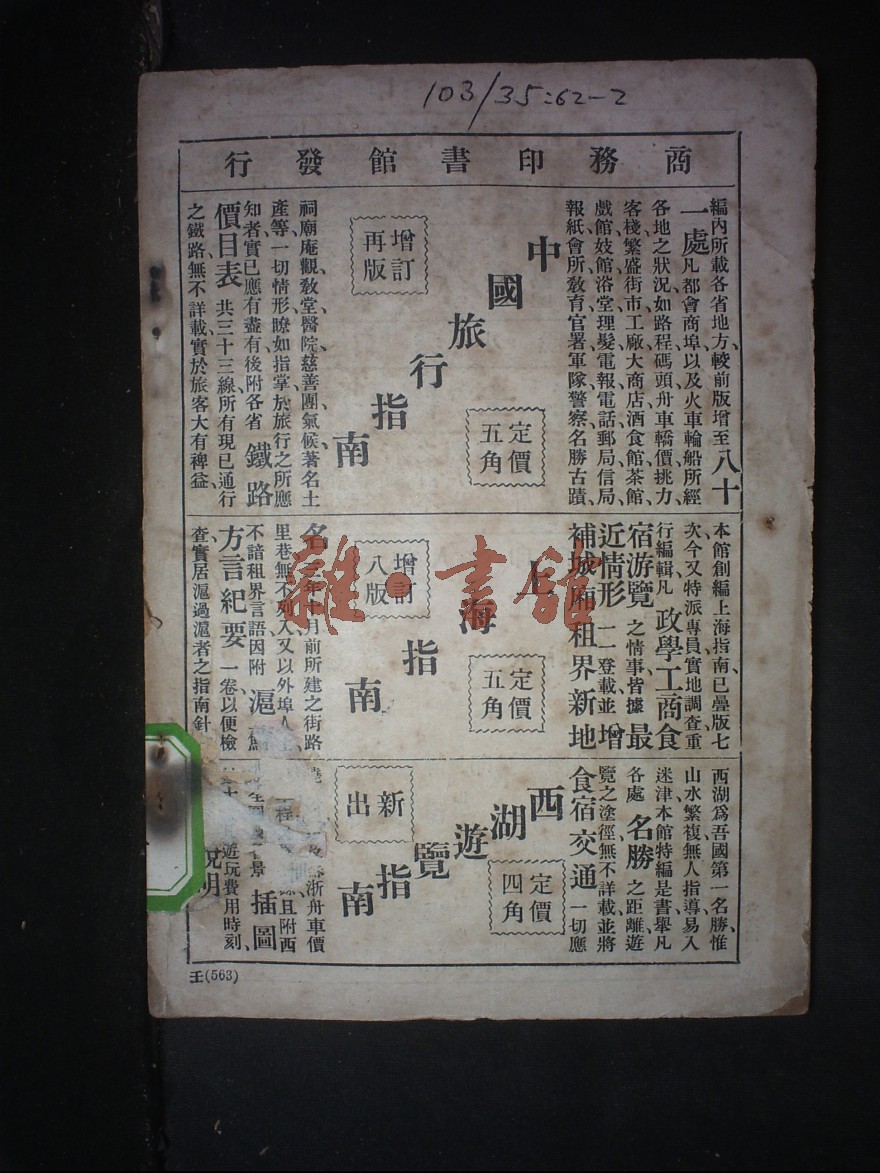 103/35:62-2
商務印書館發行
編內所載各省地方、較前版增至八十
一處、凡都會商埠以及火車輪船所經
各地之狀況、如路程碼頭舟車轎價挑力、
客棧繁盛街市工廠大商店酒食館茶館、
戲館妓館浴堂理髮電報電話郵局信局、
報紙會所教育官署軍隊警察名勝古蹟、
中國旅行指南
定價五角
增訂再版
祠廟庵觀教堂醫院慈善團氣候著名土
產等、一切情形瞭如指掌、於旅行之所應
知者、實已應有盡有、後附各省鐵路
價目表 共三十三線、所有現已通行
之鐵路、無不詳載、實於旅客大有裨益、
本館創編上海指南、已疊版七
次、今又特派專員實地調查重
行編輯、凡政學工商食
宿游覽之情事、皆據最
近情形一一登載、並增
補城廂租界新地
上海指南
定價五角
增訂八版
名 年十月前所建之街路
里巷無不列入、又以外埠人
不諳租界言語、因附滬
方言紀要一卷、以便檢
查、實居滬過滬者之指南針
西湖爲吾國第一名勝、惟
山水繁複、無人指導、易入
迷津、本館特編是書、舉凡
各處名勝之距離、遊
覽之塗徑、無不詳載、並將
食宿交通一切應
西湖遊覽指南
定價四角
新出
浙舟車價
且附西
景插圖
遊玩費用時刻、
說明
王(563)
雜·書館